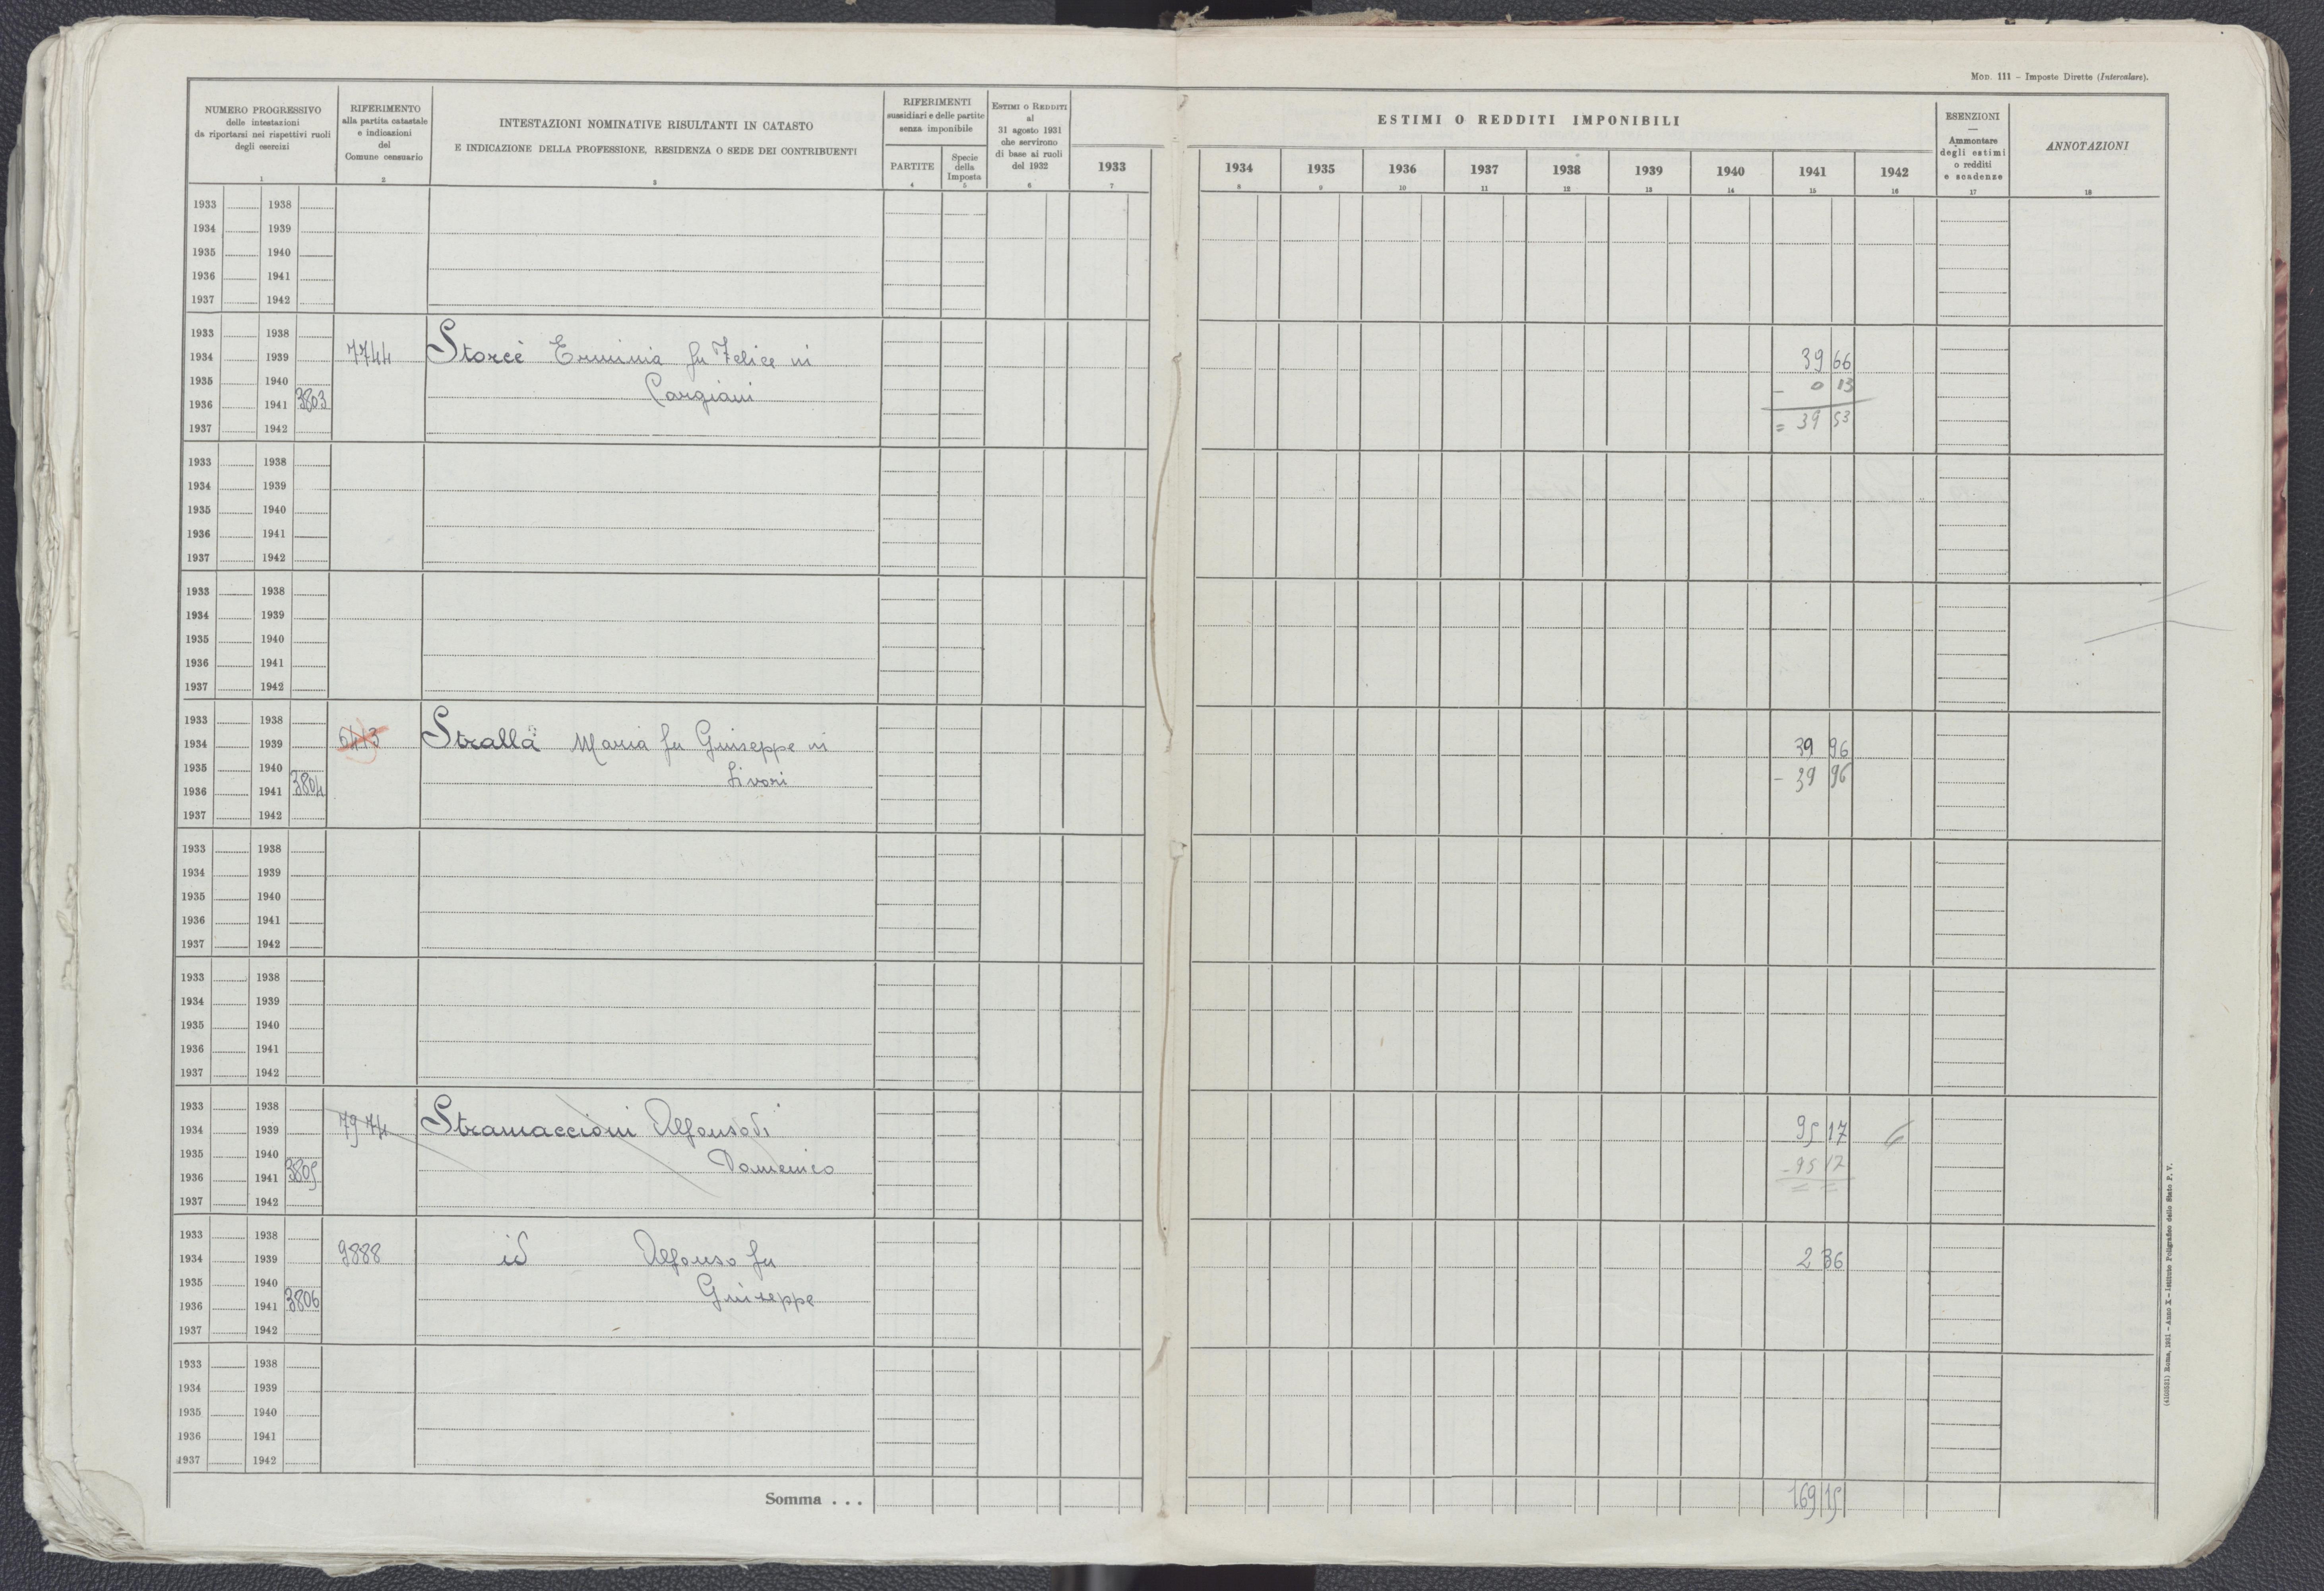 MOD. 111 – Imposte Dirette (Intercalare).
NUMERO PROGRESSIVO
delle intestazioni
da riportarsi nei rispettivi ruoli
degli esercizi
1
RIFERIMENTO
alla partita catastale
e indicazioni
del
Comune censuario
2
INTESTAZIONI NOMINATIVE RISULTANTI IN CATASTO
E INDICAZIONE DELLA PROFESSIONE, RESIDENZA O SEDE DEI CONTRIBUENTI
3
RIFERIMENTI
sussidiari e delle partite
senza imponibile
PARTITE
4
Specie
della
Imposta
5
ESTIMI O REDDITI
al
31 agosto 1931
che servirono
di base ai ruoli
del 1932
6
1933
7
ESTIMI O REDDITI IMPONIBILI
1934 1935 1936 1937 1938 1939 1940 1941 1942
8 9 10 11 12 13 14 15 16
ESENZIONI
—
Ammontare
degli estimi
o redditi
e scadenze
17
ANNOTAZIONI
18
1933 1938
1934 1939
1935 1940
1936 1941
1937 1942
1933 1938
1934 1939 7744 Storcè Erminia fu Felice in 39 66
1935 1940 Corgiani – 0 13
1936 1941 3803
1937 1942 = 39 53
1933 1938
1934 1939
1935 1940
1936 1941
1937 1942
1933 1938
1934 1939
1935 1940
1936 1941
1937 1942
1933 1938
1934 1939 Stralla Maria fu Giuseppe in 39 96
1935 1940 Livori – 39 96
1936 1941 3804
1937 1942
1933 1938
1934 1939
1935 1940
1936 1941
1937 1942
1933 1938
1934 1939
1935 1940
1936 1941
1937 1942
1933 1938
1934 1939 7974 Stramaccioni Alfonso di 95 17
1935 1940 Domenico – 95 17
1936 1941 3805 = =
1937 1942
1933 1938
1934 1939 9888 id Alfonso fu 2 36
1935 1940 Giuseppe
1936 1941 3806
1937 1942
1933 1938
1934 1939
1935 1940
1936 1941
1937 1942
Somma . . . 169 15
(4103531) Roma, 1931 – Anno X – Istituto Poligrafico dello Stato P. V.